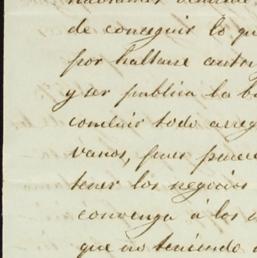 de conseguir lo qu
por hallarse autor
y ser publica la b
concluir todo arreg
varios, pues parece
tener los negocios
convenga á los
que no teniendo